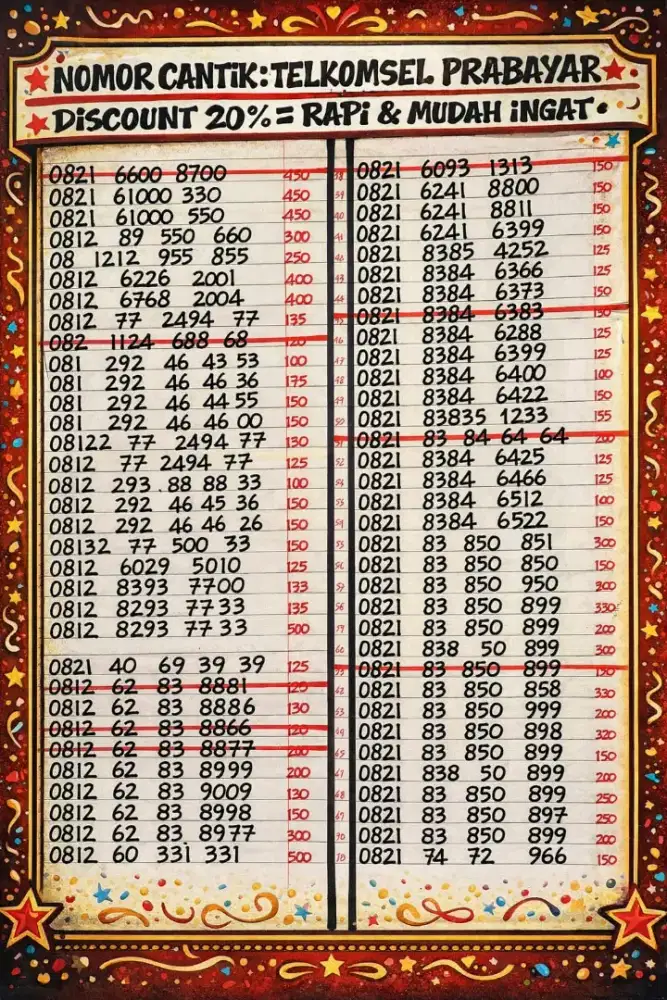 NOMOR CANTIK: TELKOMSEL PRABAYAR
DISCOUNT 20% = RAPI & MUDAH INGAT
0821 6600 8700 450
0821 61000 330 450
0821 61000 550 450
0812 89 550 660 300
08 1212 955 855 250
0812 6226 2001 400
0812 6768 2004 400
0812 77 2494 77 135
082 1124 688 68 120
081 292 46 43 53 100
081 292 46 46 36 175
081 292 46 44 55 150
081 292 46 46 00 150
08122 77 2494 77 130
0812 77 2494 77 125
0812 293 88 88 33 100
0812 292 46 45 36 150
0812 292 46 46 26 150
08132 77 500 33 150
0812 6029 5010 125
0812 8393 7700 173
0812 8293 77 33 135
0812 8293 77 33 500
0821 40 69 39 39 125
0812 62 83 8881 120
0812 62 83 8886 130
0812 62 83 8866 120
0812 62 83 8877 200
0812 62 83 8999 200
0812 62 83 9009 130
0812 62 83 8998 150
0812 62 83 8977 300
0812 60 331 331 500
0821 6093 1313 150
0821 6241 8800 150
0821 6241 8811 150
0821 6241 6399 150
0821 8385 4252 125
0821 8384 6366 125
0821 8384 6373 150
0821 8384 6383 130
0821 8384 6288 125
0821 8384 6399 125
0821 8384 6400 100
0821 8384 6422 150
0821 83835 1233 155
0821 83 84 64 64 200
0821 8384 6425 125
0821 8384 6466 125
0821 8384 6512 100
0821 8384 6522 150
0821 83 850 851 300
0821 83 850 850 150
0821 83 850 950 900
0821 83 850 899 330
0821 83 850 899 200
0821 838 50 899 300
0821 83 850 899 150
0821 83 850 858 330
0821 83 850 999 200
0821 83 850 898 320
0821 83 850 899 150
0821 838 50 899 200
0821 83 850 899 250
0821 83 850 897 250
0821 83 850 899 200
0821 74 72 966 150